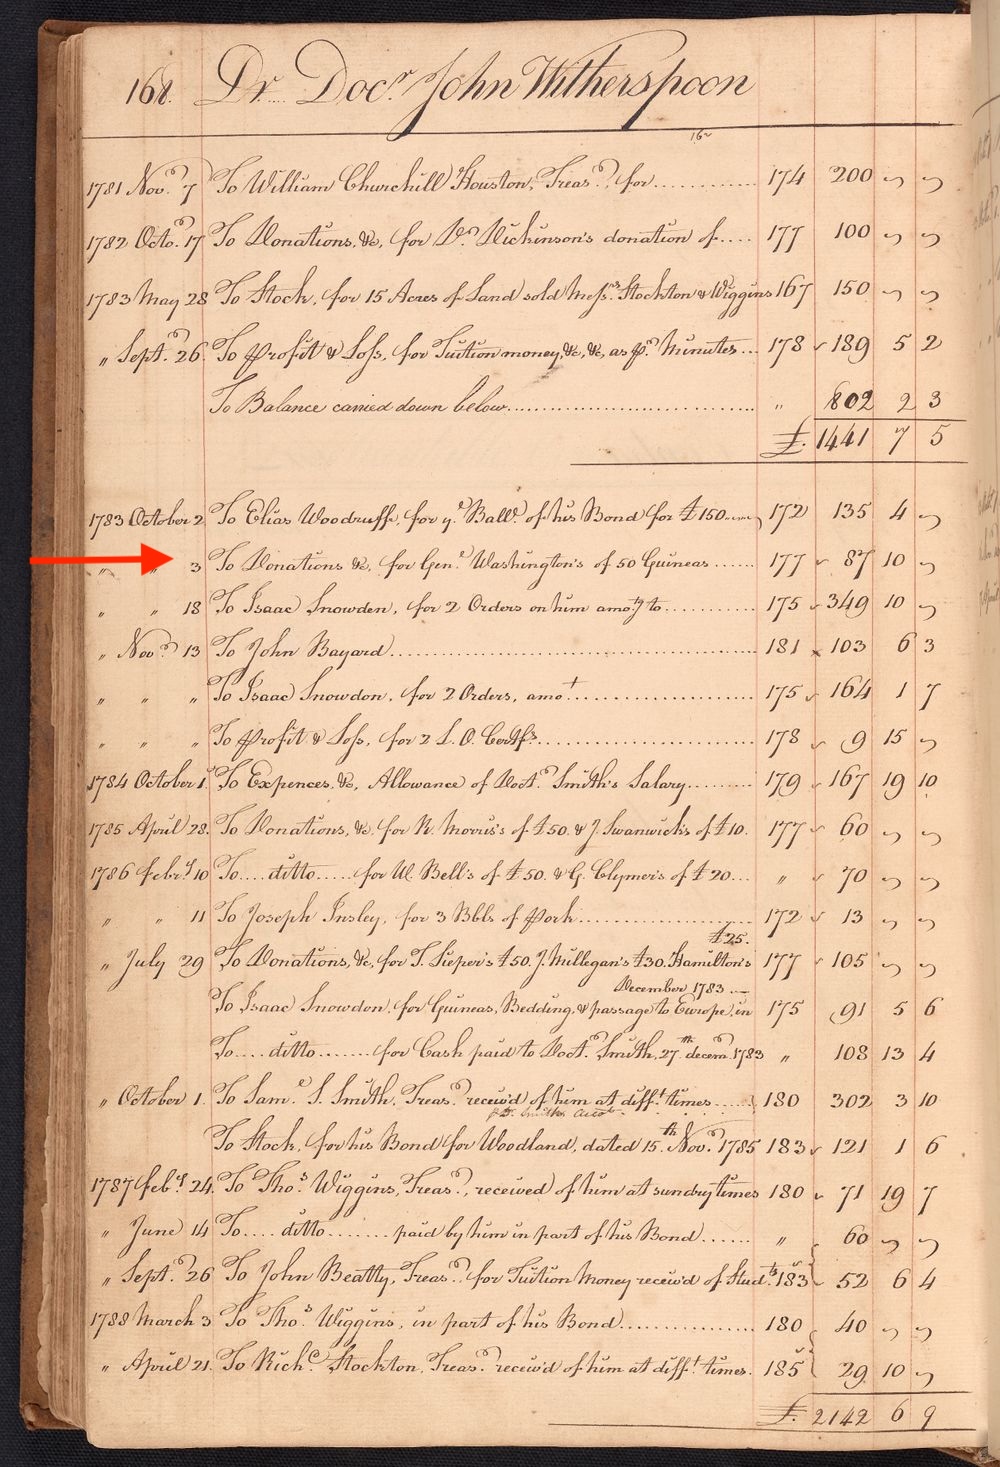 168. Dr. Docr. John Witherspoon
1781 Novr. 7 To William Churchill Houston, Treasr., for ............ 174 200 " "
1782 Octo. 17 To Donations, &c, for Dr. Dickinson's donation of .... 177 100 " "
1783 May 28 To Stock, for 15 Acres of Land sold Messrs. Stockton & Wiggins 167 150 " "
" Septr. 26. To Profit & Loss, for Tuition money, &c, &c, as pr. Minutes ... 178 189 5 2
To Balance carried down below ............ " 802 2 3
£. 1441 7 5
1783 October 2 To Elias Woodruff, for ye. Balle. of his Bond for £150 172 135 4 "
" " 3 To Donations &c, for Genl. Washington's of 50 Guineas ...... 177 87 10 "
" " 18 To Isaac Snowden, for 2 Orders on him amotg to ............ 175 349 10 "
" Novr. 13 To John Bayard ............ 181 103 6 3
" " " To Isaac Snowdon, for 2 Orders, amot. ............ 175 164 1 7
" " " To Profit & Loss, for 2 L. O. Certfs. ............ 178 9 15 "
1784 October 1. To Expences, &c, Allowance of Doctr. Smith's Salary ......... 179 167 19 10
1785 April 28. To Donations, &c. for R. Morris's of £50. & J. Swanwick's of £10. 177 60 " "
1786 Febry. 10 To .... ditto ..... for W. Bell's of £50. & G. Clymer's of £20 ... " 70 " "
" " 11 To Joseph Insley, for 3 Bbls of Pork ............ 172 13 " "
£25.
" July 29 To Donations, &c, for T. Lieper's £50. J. Millegan's £30. Hamilton's 177 105 " "
December 1783
To Isaac Snowdon, for Guineas, Bedding, & passage to Europe, in 175 91 5 6
To .... ditto ....... for Cash paid to Doctr. Smith, 27.th decem. 1783 " 108 13 4
" October 1. To Saml. S. Smith, Treasr. receiv'd of him at difft. times ..... 180 302 3 10
To Stock, for his Bond for Woodland, dated 15.th Novr. 1785 183 121 1 6
1787 Feby. 24. To Thos. Wiggins, Treasr., received of him at sundry times 180 71 19 7
" June 14 To .... ditto ....... paid by him in part of his Bond ...... " 60 " "
" Septr. 26 To John Beatty, Treasr. for Tuition Money receiv'd of Studts. 183 52 6 4
1788 March 3 To Thos. Wiggins, in part of his Bond ............ 180 40 " "
" April 21. To Richd. Stockton, Treasr. receiv'd of him at difft. times. 185 29 10 "
£. 2142 6 9